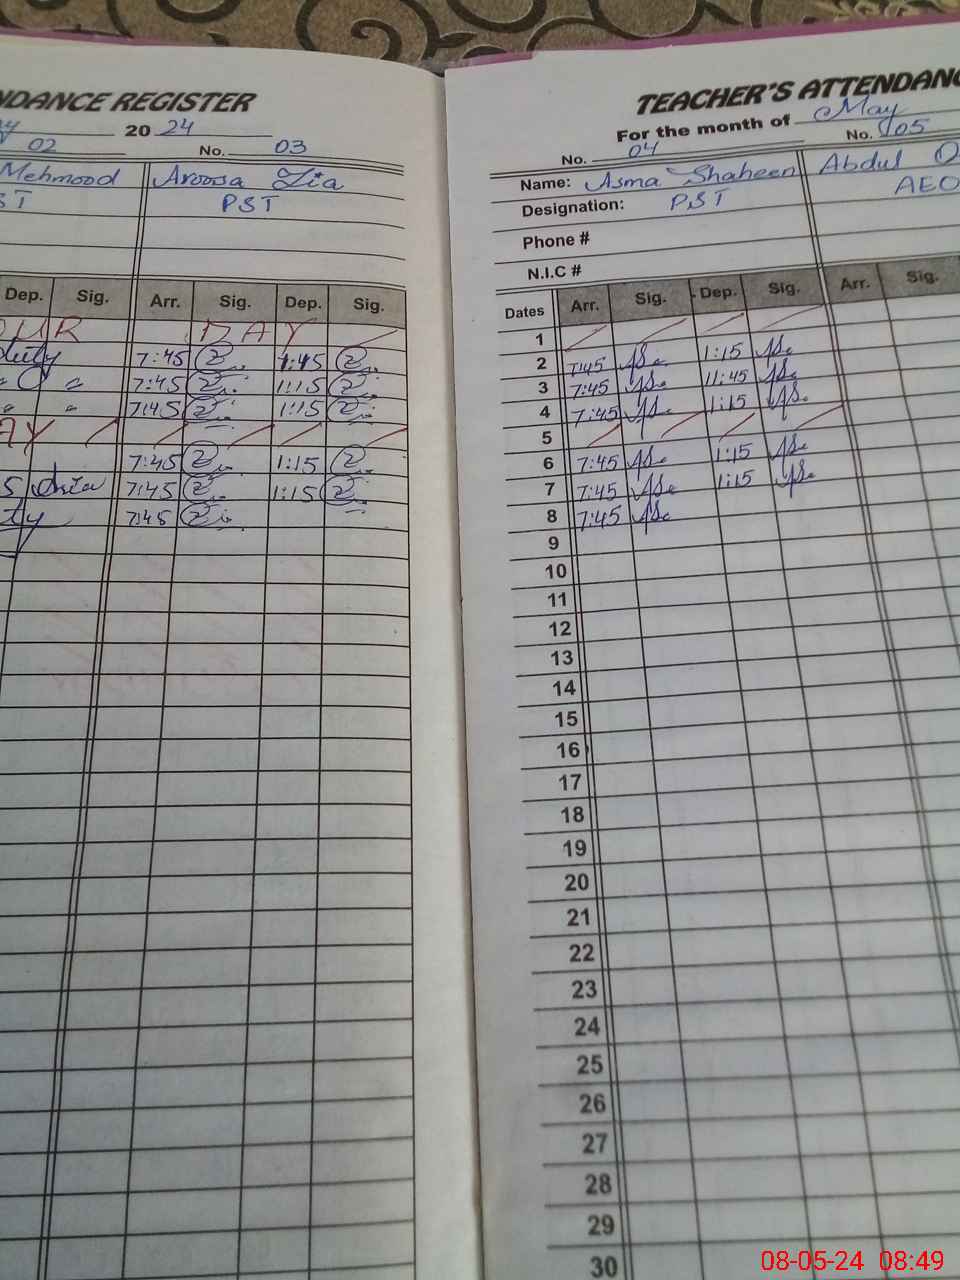 NDANCE REGISTER
20 24
02 No. 03
Mehmood Aroosa Zia
ST PST
Dep. Sig. Arr. Sig. Dep. Sig.
OUR DAY
duty 7:45 1:45
7:45 1:15
7:45 1:15
AY
7:45 1:15
7:45 1:15
ty 7:45
TEACHER'S ATTENDANC
For the month of May
No. 04 No. 05
Name: Asma Shaheen Abdul
Designation: PST AEO
Phone #
N.I.C #
Dates Arr. Sig. Dep. Sig. Arr. Sig.
1
2 7:45 1:15
3 7:45 11:45
4 7:45 1:15
5
6 7:45 1:15
7 7:45 1:15
8 7:45
9
10
11
12
13
14
15
16
17
18
19
20
21
22
23
24
25
26
27
28
29
30
08-05-24 08:49